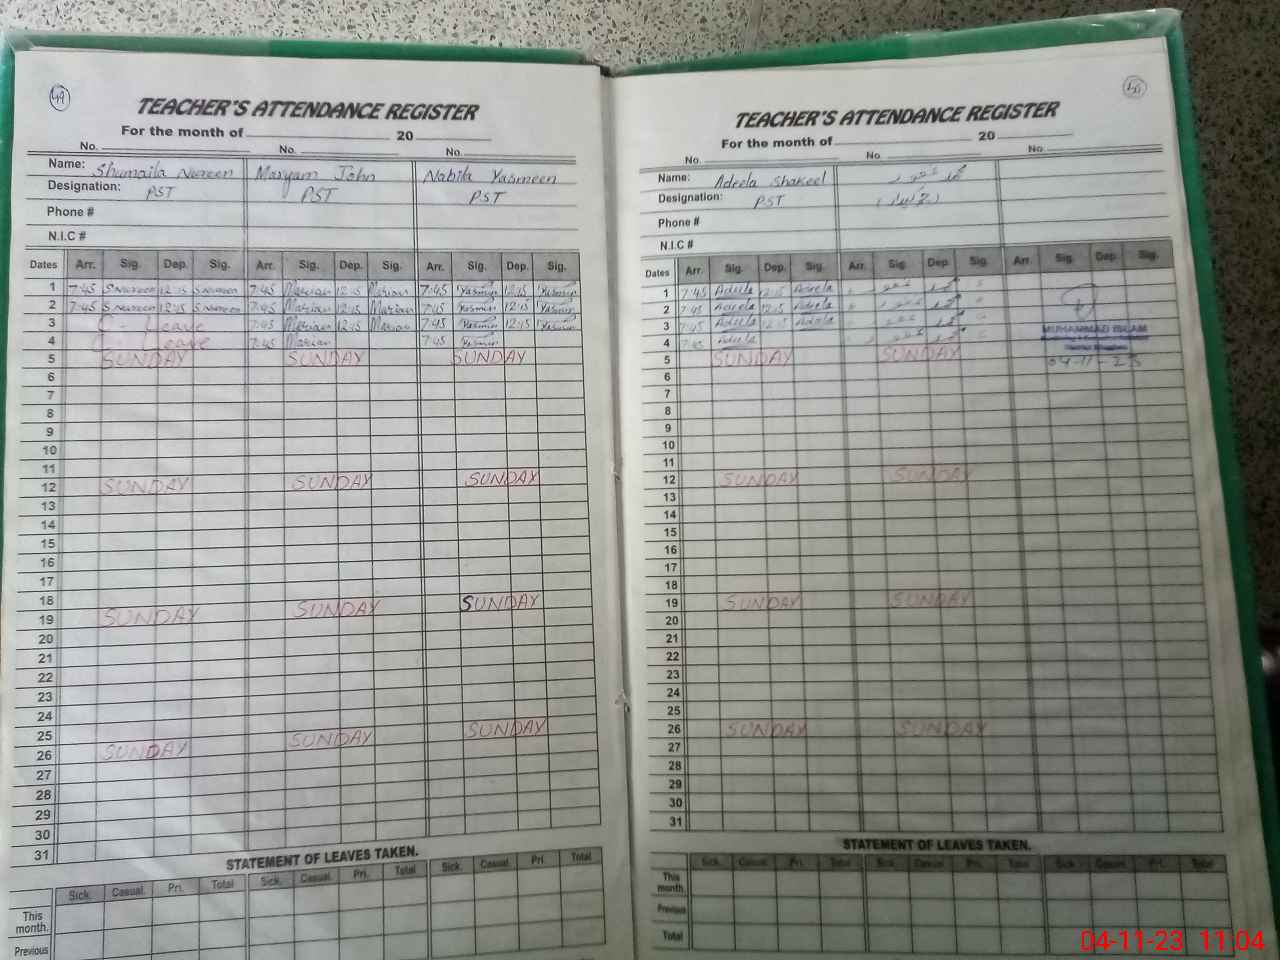 49
TEACHER'S ATTENDANCE REGISTER
For the month of 20
No. No. No.
Name: Shumaila Noreen Maryam John Nabila Yasmeen
Designation: PST PST PST
Phone #
N.I.C #
Dates Arr. Sig. Dep. Sig. Arr. Sig. Dep. Sig. Arr. Sig. Dep. Sig.
1 7:45 SNoreen 12:15 SNoreen 7:45 Marian 12:15 Marian 7:45 Yasmin 12:15 Yasmin
2 7:45 SNoreen 12:15 SNoreen 7:45 Marian 12:15 Marian 7:45 Yasmin 12:15 Yasmin
3 C - Leave 7:45 Marian 12:15 Marian 7:45 Yasmin 12:15 Yasmin
4 C - Leave 7:45 Marian 7:45 Yasmin
5 SUNDAY SUNDAY SUNDAY
6
7
8
9
10
11
12 SUNDAY SUNDAY SUNDAY
13
14
15
16
17
18
19 SUNDAY SUNDAY SUNDAY
20
21
22
23
24
25
26 SUNDAY SUNDAY SUNDAY
27
28
29
30
31
STATEMENT OF LEAVES TAKEN.
Sick. Casual. Pri. Total Sick. Casual. Pri. Total Sick. Casual. Pri. Total
This month.
Previous
TEACHER'S ATTENDANCE REGISTER
For the month of 20
No. No. No.
Name: Adeela Shakeel
Designation: PST
Phone #
N.I.C #
Dates Arr. Sig. Dep. Sig. Arr. Sig. Dep. Sig. Arr. Sig. Dep. Sig.
1 7:45 Adeela 12:15 Adeela
2 7:45 Adeela 12:15 Adeela
3 7:45 Adeela 12:15 Adeela MUHAMMAD
4 7:45 Adeela
5 SUNDAY SUNDAY 04-11-23
6
7
8
9
10
11
12 SUNDAY SUNDAY
13
14
15
16
17
18
19 SUNDAY SUNDAY
20
21
22
23
24
25
26 SUNDAY SUNDAY
27
28
29
30
31
STATEMENT OF LEAVES TAKEN.
Sick. Casual. Pri. Total Sick. Casual. Pri. Total Sick. Casual. Pri. Total
This month.
Previous
Total
04-11-23 11:04